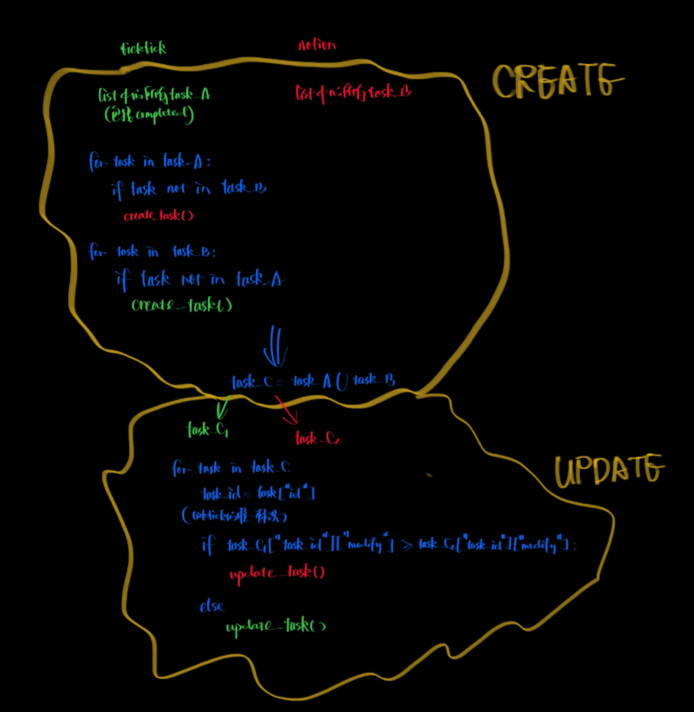 ticktick
notion
CREATE
list of task_A
(completed)
list of task_B
for task in task_A:
if task not in task_B
create task()
for task in task_B:
if task not in task_A
create_task()
task_C = task_A ∪ task_B
task_C1
task_C2
UPDATE
for task in task_C
task_id = task["id"]
(ticktick
if task_C1["task_id"]["modify"] ≥ task_C2["task_id"]["modify"]:
update_task()
else
update_task()